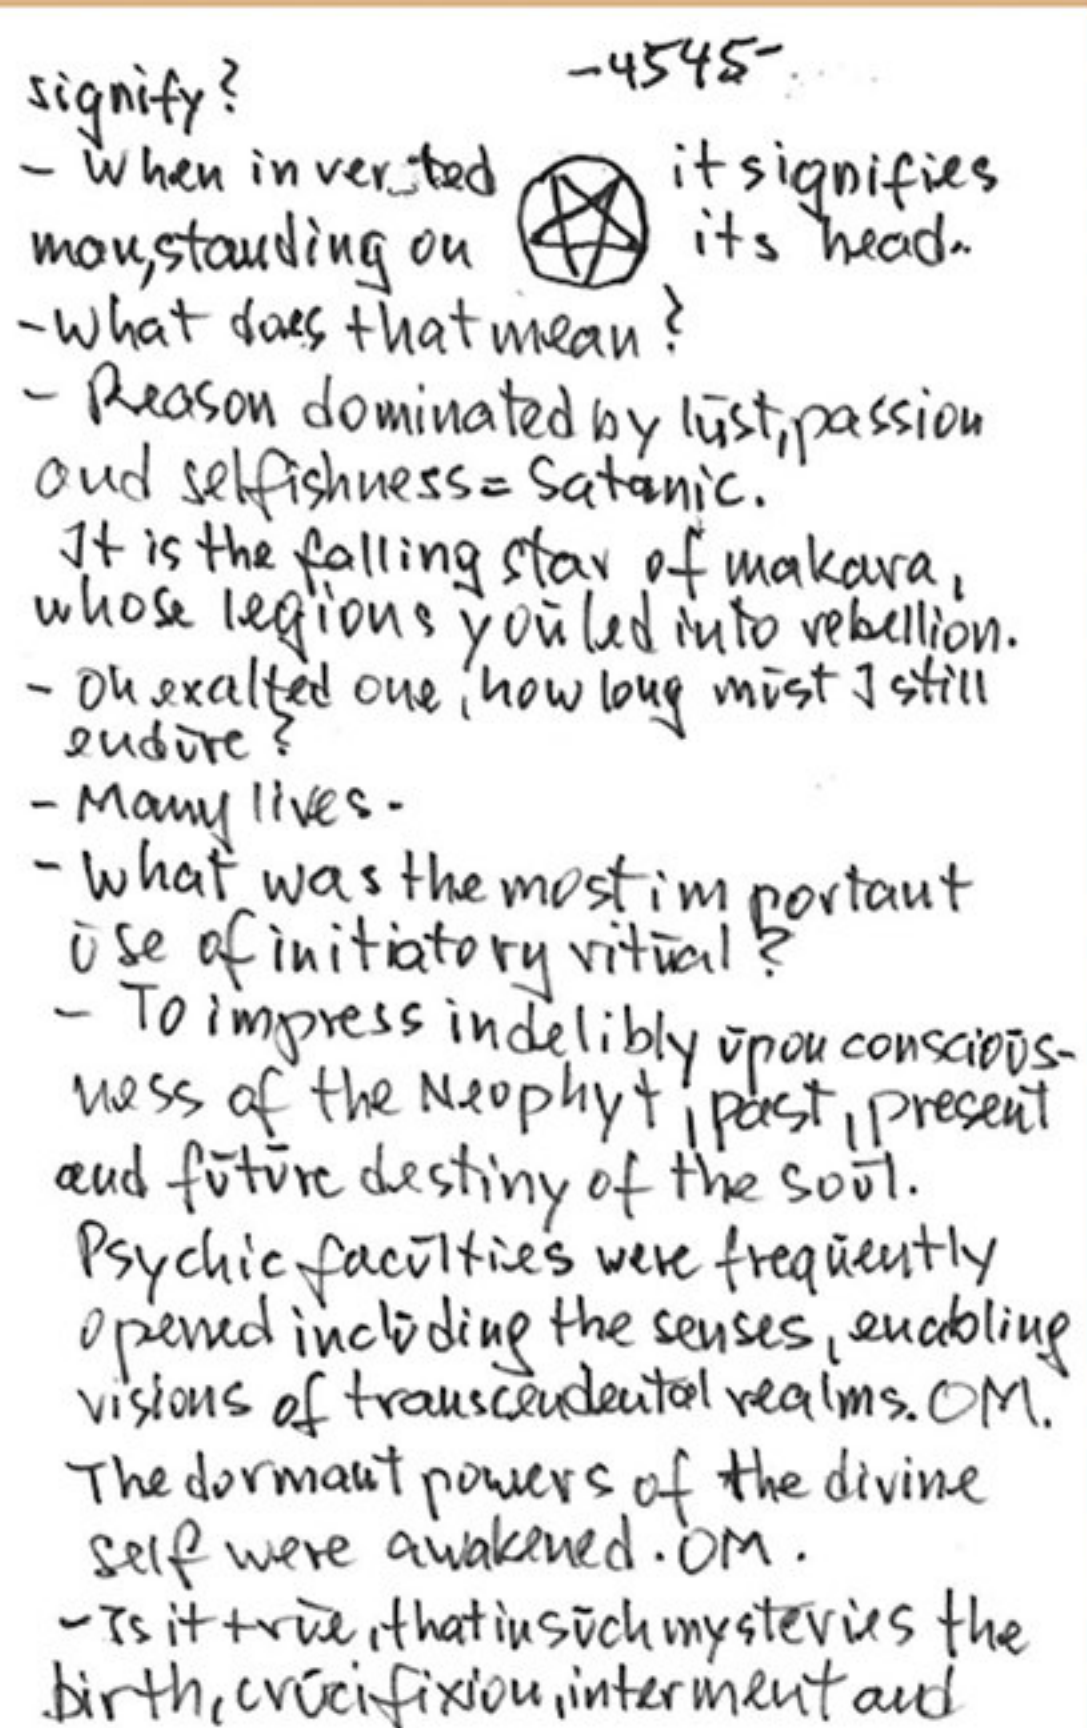 -4545-
signify?
- When inverted it signifies
man, standing on its head..
- What does that mean?
- Reason dominated by lūst, passion
and selfishness = Satanic.
It is the falling star of makara,
whose legions yoū led into rebellion.
- Oh exalted one, how long mūst I still
endūre?
- Many lives.
- What was the most important
ūse of initiatory ritūal?
- To impress indelibly ūpon conscioūs-
ness of the Neophyt, past, present
and fūtūre destiny of the soūl.
Psychic facūlties were freqūently
opened inclūding the senses, enabling
visions of transcendental realms. OM.
The dormant powers of the divine
self were awakened. OM.
- Is it trūe, that in sūch mysteries the
birth, crūcifixion, interment and